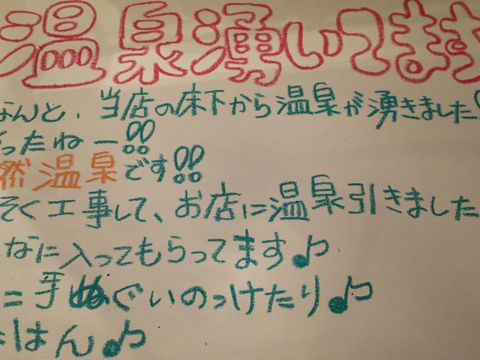 温泉湧いてます
なんと、当店の床下から温泉が湧きました!
ったねー!!
然温泉です!!
そく工事して、お店に温泉引きました
なに入ってもらってます♪
に手ぬぐいのっけたり♪
はん♪